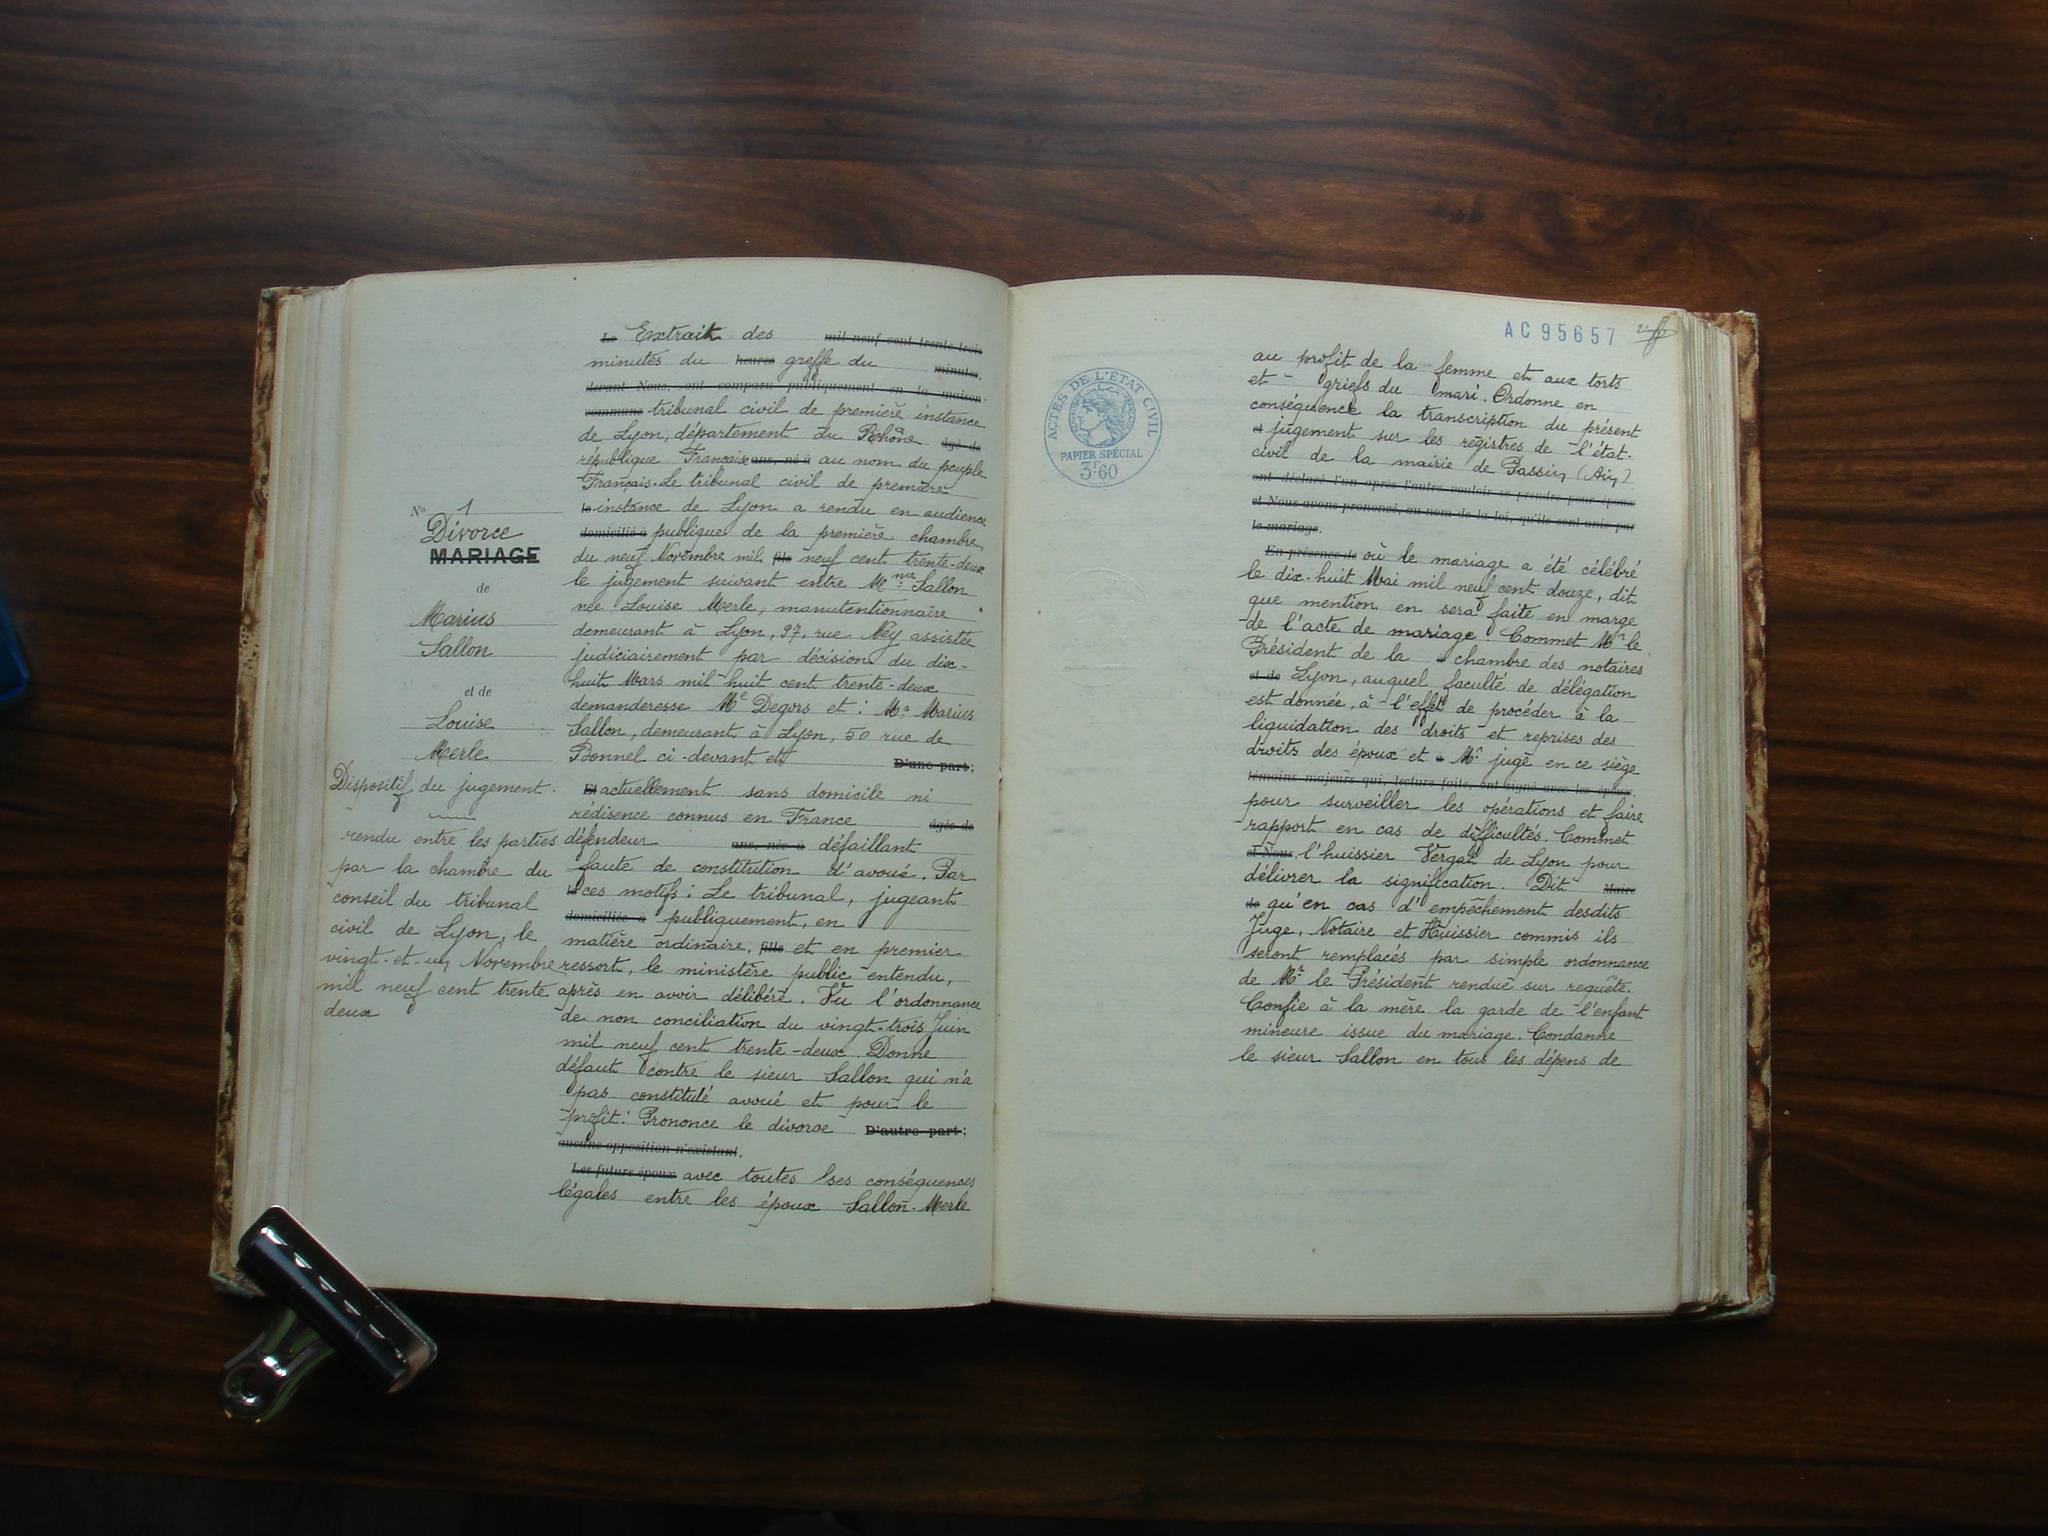 Nº 1
Divorce
MARIAGE
de
Marius
Sallon
et de
Louise
Merle
Dispositif du jugement
rendu entre les parties
par la chambre du
conseil du tribunal
civil de Lyon, le
vingt-et-un Novembre
mil neuf cent trente
deux
Le Extrait des mil neuf cent trente-trois
minutes du heures greffe du minutes,
devant Nous, ont comparu publiquement en la maison
commune tribunal civil de première instance
de Lyon, département du Rhône âgé de
république Française ans, né à au nom du peuple
Français. Le tribunal civil de première
le instance de Lyon a rendu en audience
domicilié à publique de la première chambre
du neuf Novembre mil fils neuf cent trente-deux
le jugement suivant entre Mme Sallon
née Louise Merle, manutentionnaire
demeurant à Lyon, 97, rue Ney assistée
judiciairement par décision du dix-
huit Mars mil huit cent trente-deux
demanderesse Me Degors et : Mr Marius
Sallon, demeurant à Lyon, 50 rue de
Bonnel ci-devant et D'une part;
Et actuellement sans domicile ni
rédisence connus en France âgée de
défendeur ans, née à défaillant
faute de constitution d'avoué. Par
le ces motifs : Le tribunal, jugeant
domiciliée à publiquement, en
matière ordinaire, fille et en premier
ressort, le ministère public entendu,
après en avoir délibéré. Vu l'ordonnance
de non conciliation du vingt-trois Juin
mil neuf cent trente-deux. Donne
défaut contre le sieur Sallon qui n'a
pas constitué avoué et pour le
profit : Prononce le divorce D'autre part;
aucune opposition n'existant.
Les futurs époux avec toutes ses conséquences
légales entre les époux Sallon-Merle
AC 95657
ACTES DE L'ÉTAT CIVIL
PAPIER SPÉCIAL
3F60
au profit de la femme et aux torts
et griefs du mari. Ordonne en
conséquence la transcription du présent
et jugement sur les registres de l'état-
civil de la mairie de Passin (Ain)
ont déclaré l'un après l'autre vouloir se prendre pour époux
et Nous avons prononcé, au nom de la loi, qu'ils sont unis par
le mariage.
En présence de où le mariage a été célébré
le dix-huit Mai mil neuf cent douze, dit
que mention en sera faite en marge
de l'acte de mariage. Commet Mr le
Président de la chambre des notaires
et de Lyon, auquel faculté de délégation
est donnée, à l'effet de procéder à la
liquidation des droits et reprises des
droits des époux et Mr jugé en ce siège
témoins majeurs qui, lecture faite, ont signé avec les époux
pour surveiller les opérations et faire
rapport en cas de difficultés. Commet
et Nous l'huissier Vergat de Lyon pour
délivrer la signification. Dit Maire
de qu'en cas d'empêchement desdits
Juge, Notaire et Huissier commis ils
seront remplacés par simple ordonnance
de Mr le Président rendue sur requête.
Confie à la mère la garde de l'enfant
mineure issue du mariage. Condanne
le sieur Sallon en tous les dépens de